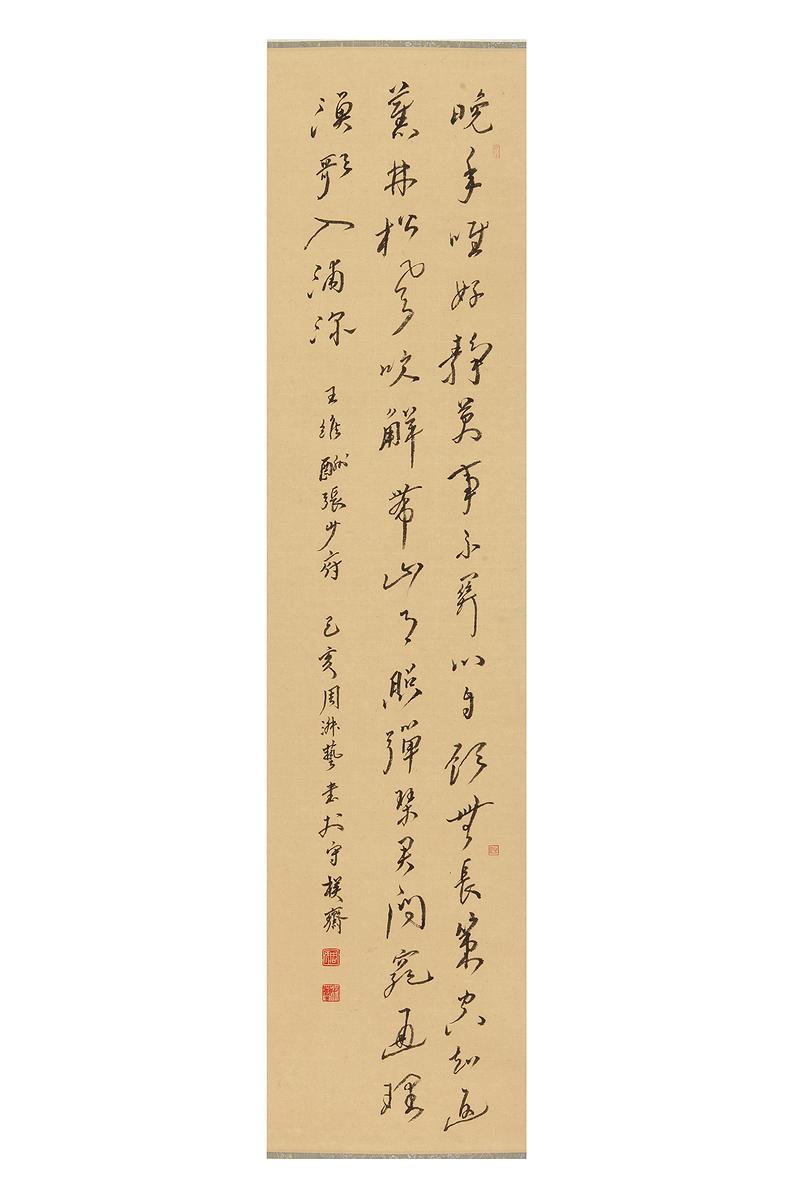 晚年唯好靜萬事不關心自顧無長策空知返
舊林松風吹解帶山月照彈琴君問窮通理
漁歌入浦深 王維酬張少府 己亥周淋藝書於守樸齋